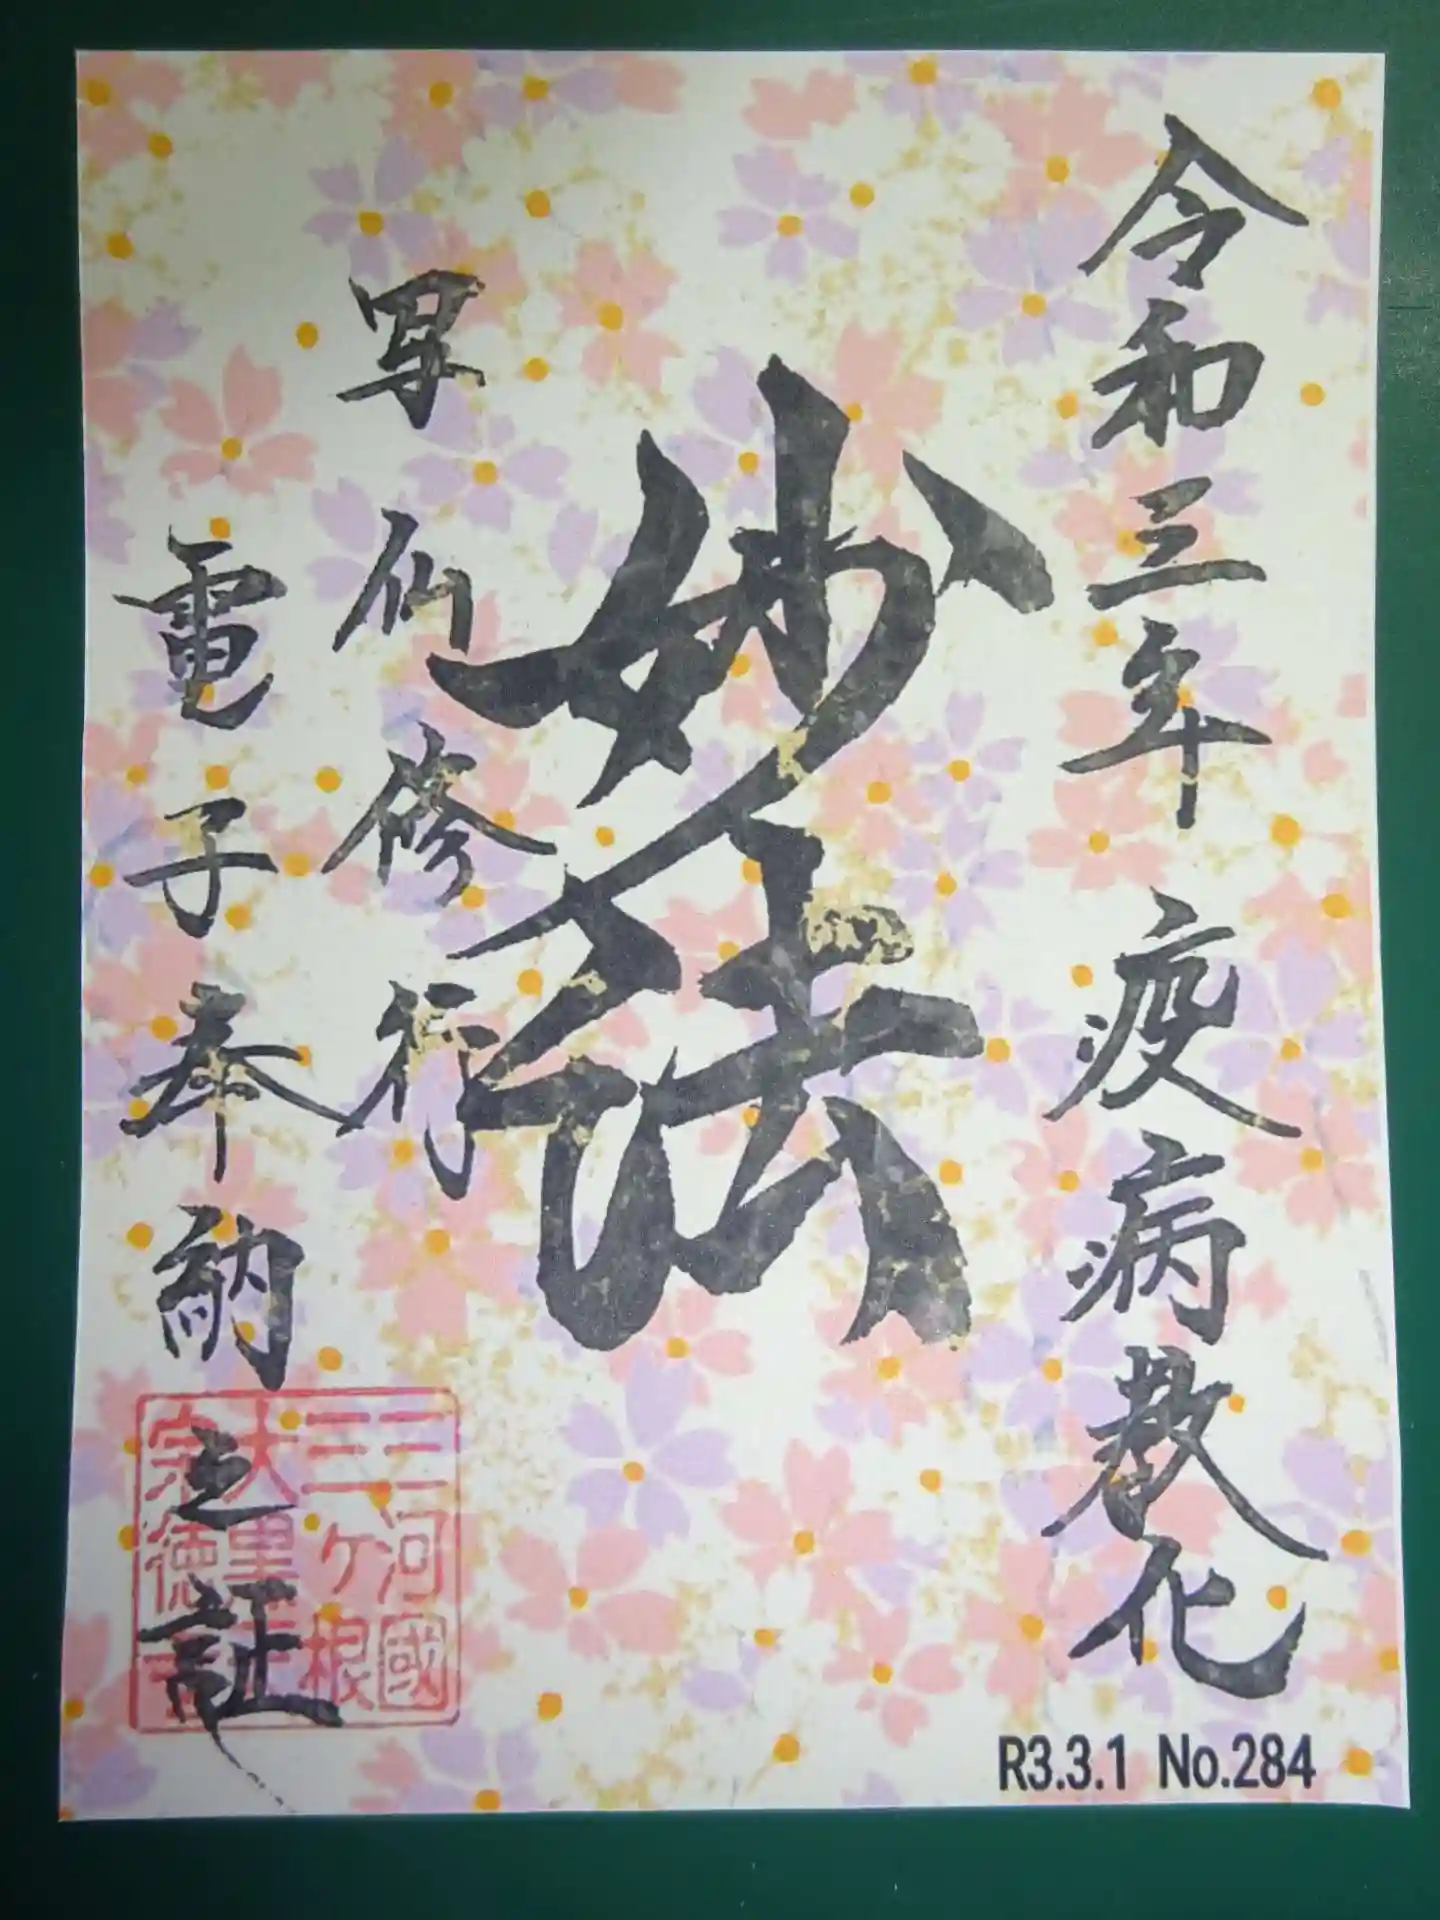 令和三年 疫病教化
妙法
写仏修行
電子奉納之証
三河國
三ヶ根
大聖山
宗徳寺
R3.3.1 No.284